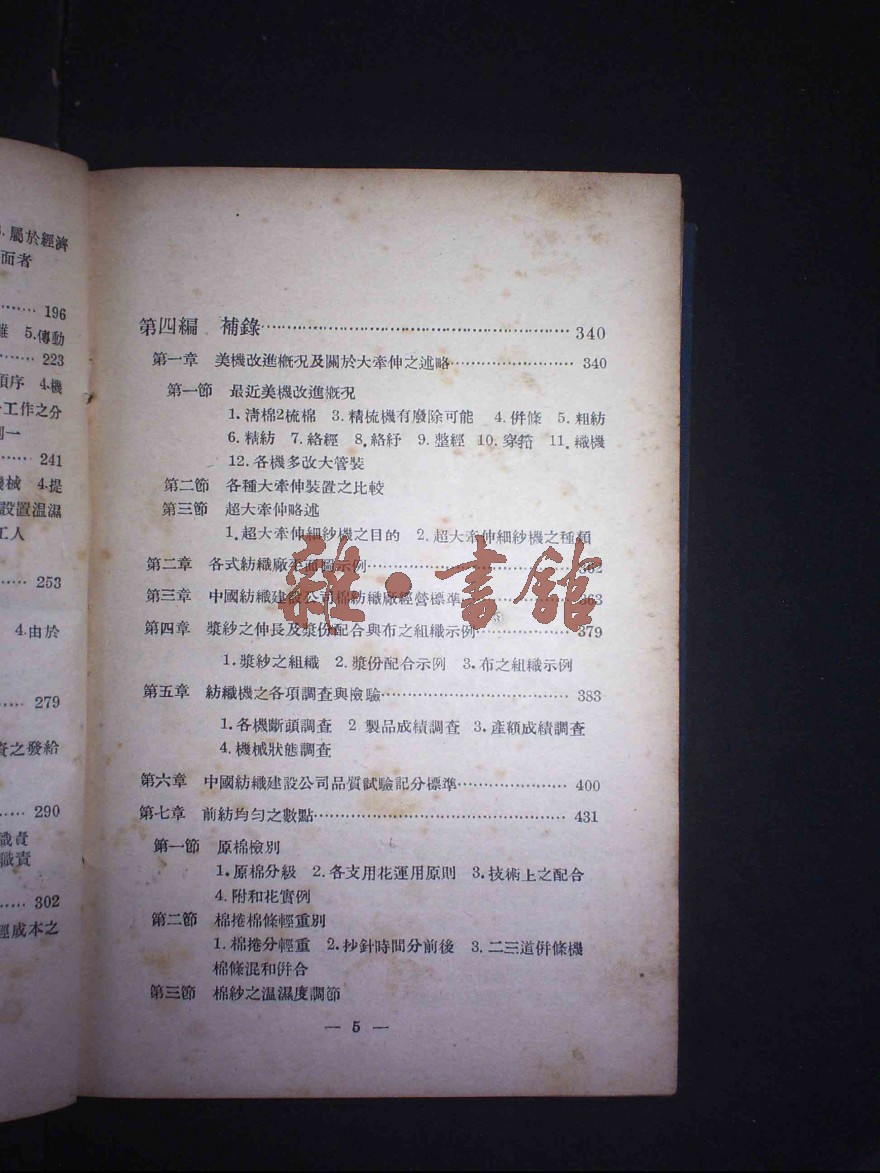 屬於經濟
面者
196
5.傳動
223
順序 4.機
工作之分
241
機械 4.提
設置温濕
工人
253
4.由於
279
資之發給
290
職責
職責
302
經成本之
第四編 補錄 340
第一章 美機改進概況及關於大牽伸之述略 340
第一節 最近美機改進概況
1.清棉2梳棉 3.精梳機有廢除可能 4.併條 5.粗紡
6.精紡 7.絡經 8.絡紆 9.整經 10.穿筘 11.織機
12.各機多改大管裝
第二節 各種大牽伸裝置之比較
第三節 超大牽伸略述
1.超大牽伸細紗機之目的 2.超大牽伸細紗機之種類
第二章 各式紡織廠平面圖示例 362
第三章 中國紡織建設公司棉紡織廠經營標準 363
第四章 漿紗之伸長及漿份配合與布之組織示例 379
1.漿紗之組織 2.漿份配合示例 3.布之組織示例
第五章 紡織機之各項調查與檢驗 383
1.各機斷頭調查 2 製品成績調查 3.產額成績調查
4.機械狀態調查
第六章 中國紡織建設公司品質試驗記分標準 400
第七章 前紡均勻之數點 431
第一節 原棉檢別
1.原棉分級 2.各支用花運用原則 3.技術上之配合
4.附和花實例
第二節 棉捲棉條輕重別
1.棉捲分輕重 2.抄針時間分前後 3.二三道併條機
棉條混和併合
第三節 棉紗之温濕度調節
— 5 —
雜·書館